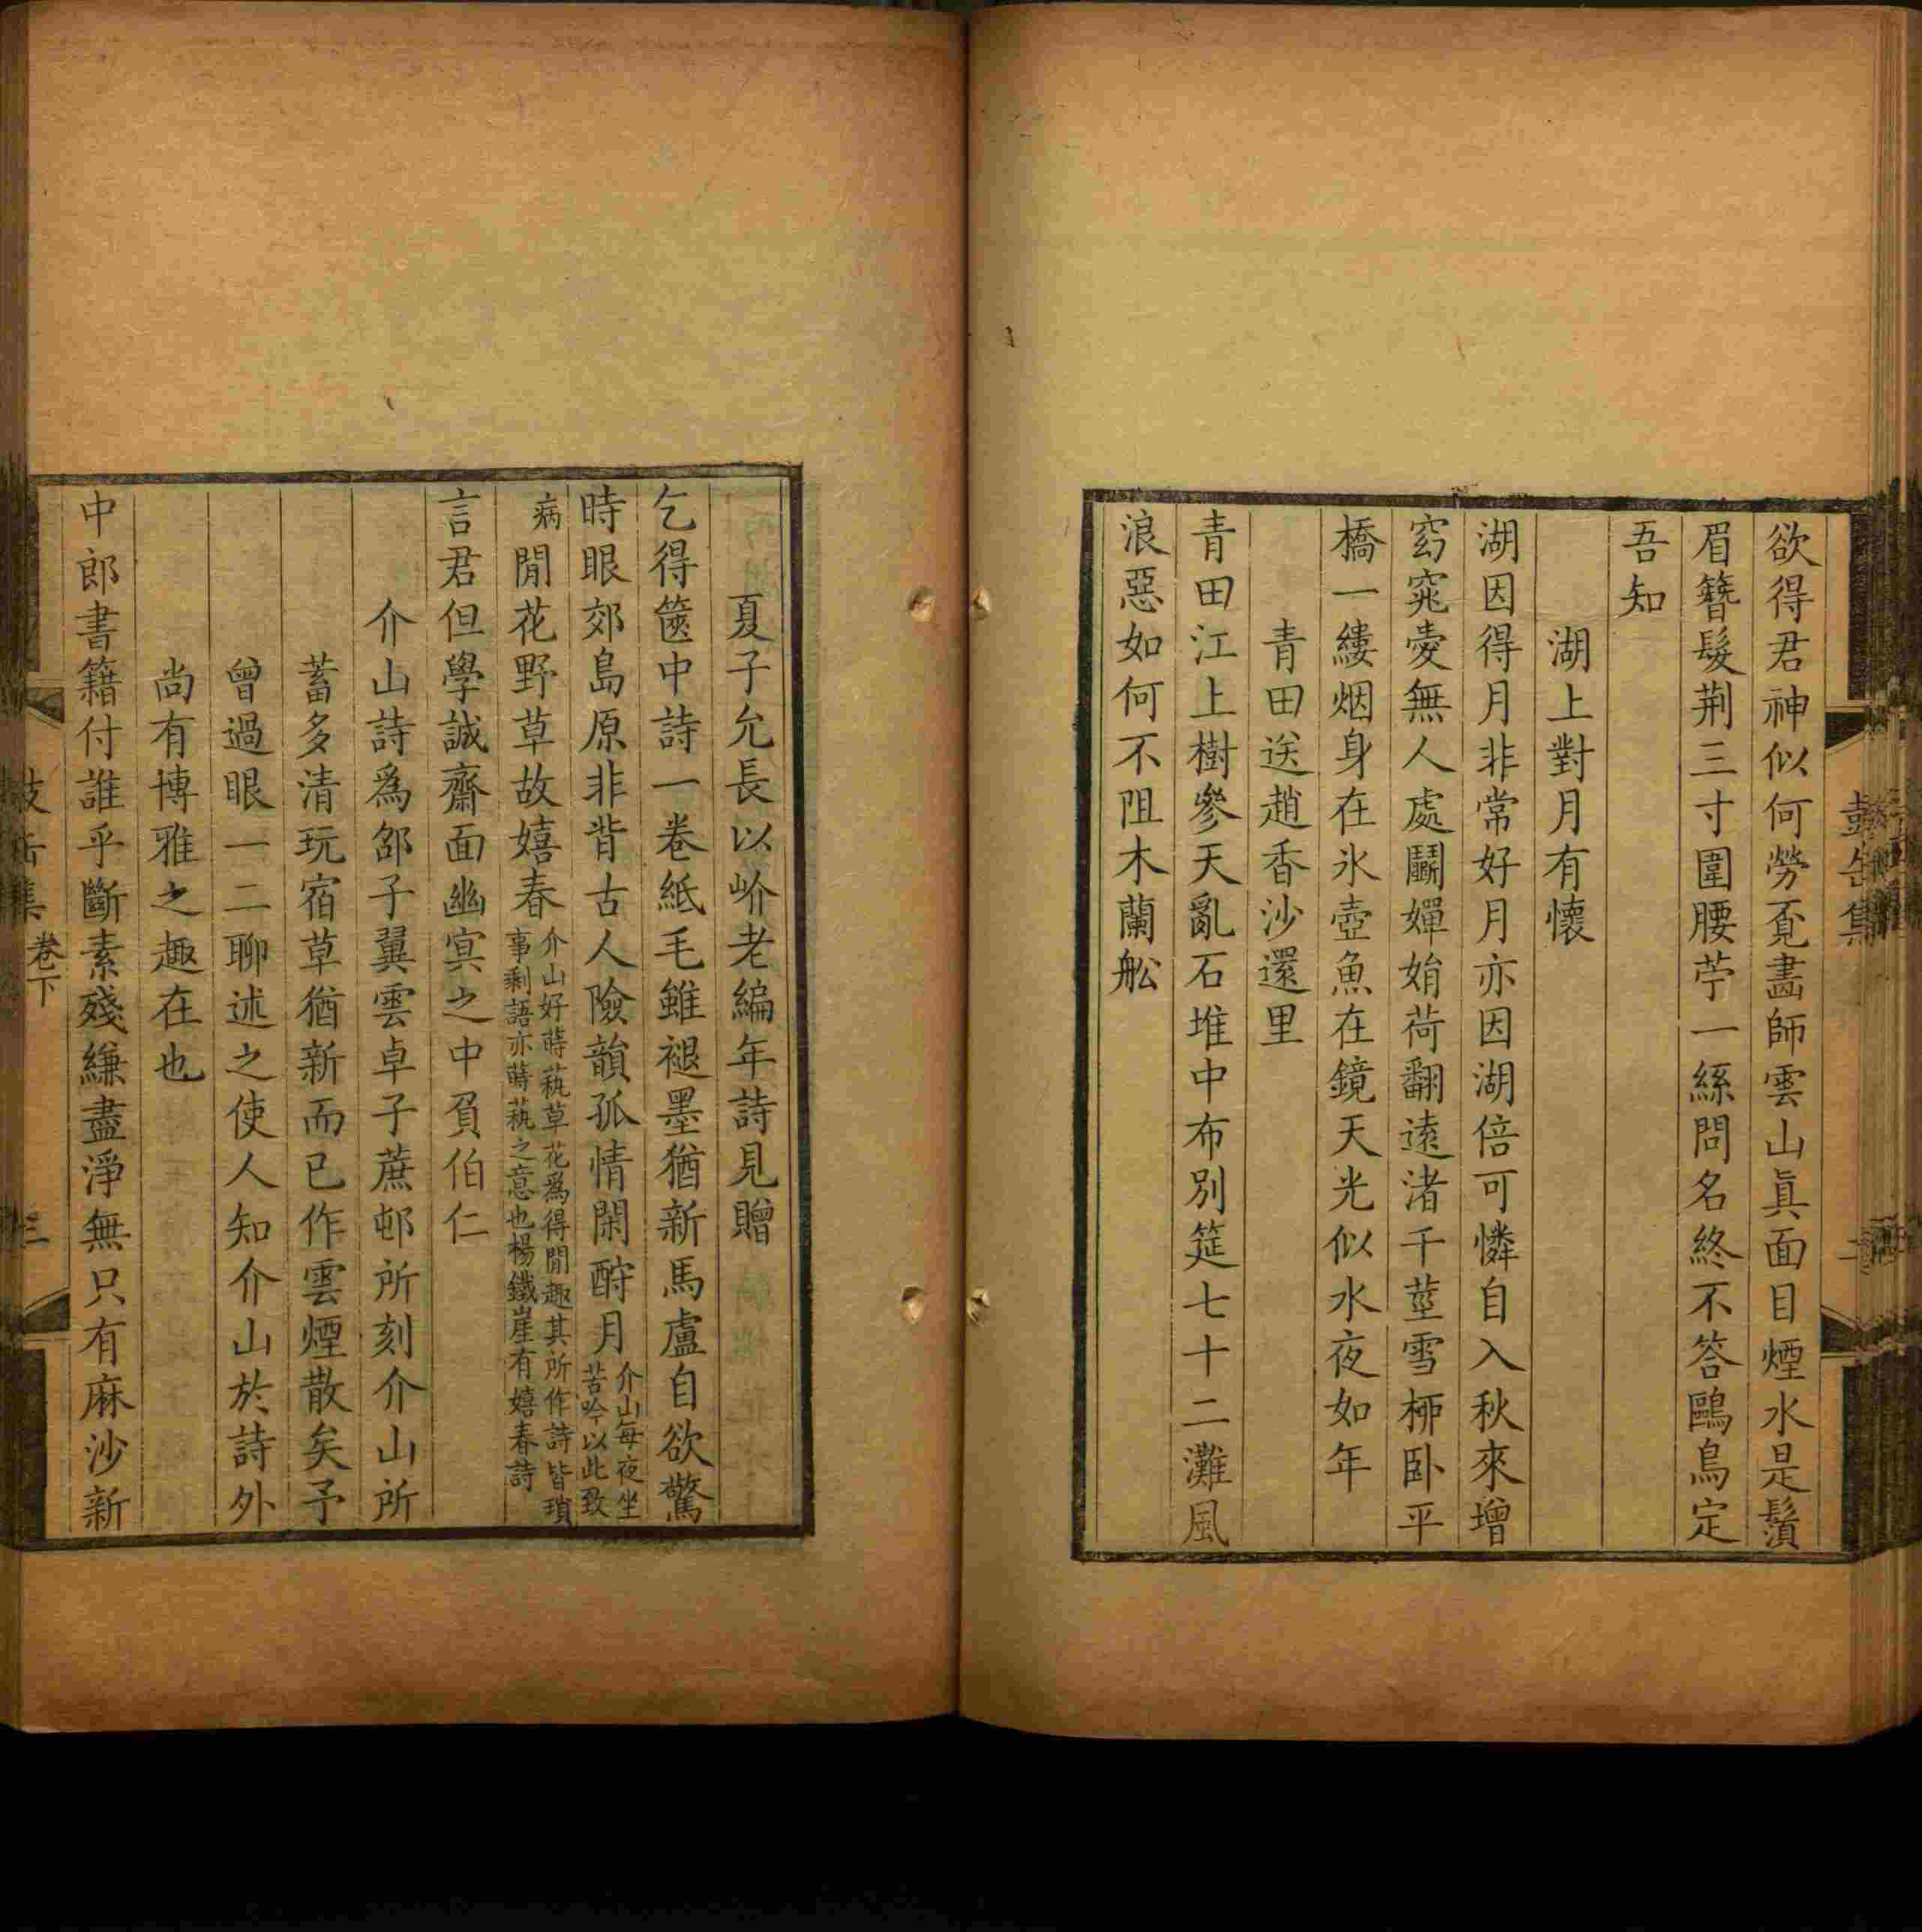 欲得君神似何勞覔畵師雲山眞面目煙水是鬚
眉簪髮荆三寸圍腰苧一絲問名終不答鷗鳥定
吾知
湖上對月有懷
湖因得月非常好月亦因湖倍可憐自入秋來增
窈窕憂無人處鬭嬋娟荷翻遠渚千莖雪栁卧平
橋一縷烟身在氷壺魚在鏡天光似水夜如年
青田送趙香沙還里
青田江上樹參天亂石堆中布別筵七十二灘風
浪惡如何不阻木蘭舩
夏子允長以岕老編年詩見贈
乞得篋中詩一卷紙毛雖褪墨猶新馬盧自欲驚
時眼郊島原非背古人險韻孤情閑酹月
介山每夜坐
苦吟以此致
病
閒花野草故嬉春
介山好蒔蓺草花爲得閒趣其所作詩皆瑣
事剩語亦蒔蓺之意也楊鐵崖有嬉春詩
言君但學誠齋面幽㝠之中負伯仁
介山詩爲邵子翼雲卓子蔗邨所刻介山所
蓄多清玩宿草猶新而已作雲煙散矣予
曾過眼一二聊述之使人知介山於詩外
尚有博雅之趣在也
中郎書籍付誰乎斷素殘縑盡淨無只有麻沙新
卷下